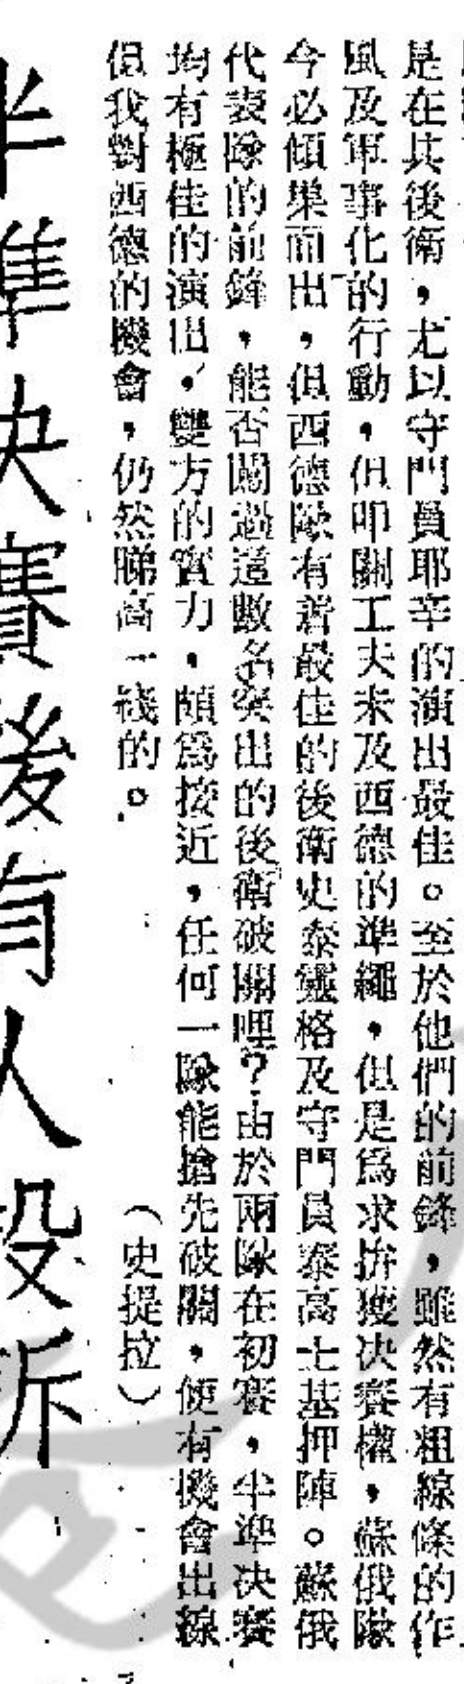 是在其後衛，尤以守門員耶辛的演出最佳。至於他們的前鋒，雖然有粗線條的作
風及軍事化的行動，但叩關工夫未及西德的準繩，但是爲求拚獲决賽權，蘇俄隊
今必傾巢而出，但西德隊有着最佳的後衛史泰靈格及守門員泰高士基押陣。蘇俄
代表隊的前鋒，能否闖過這數名突出的後衛破關哩？由於兩隊在初賽，半準决賽
均有極佳的演出，雙方的實力，頗爲接近，任何一隊能搶先破關，便有機會出線
但我對西德的機會，仍然睇高一綫的。
（史提拉）
半準决賽後有人投訴